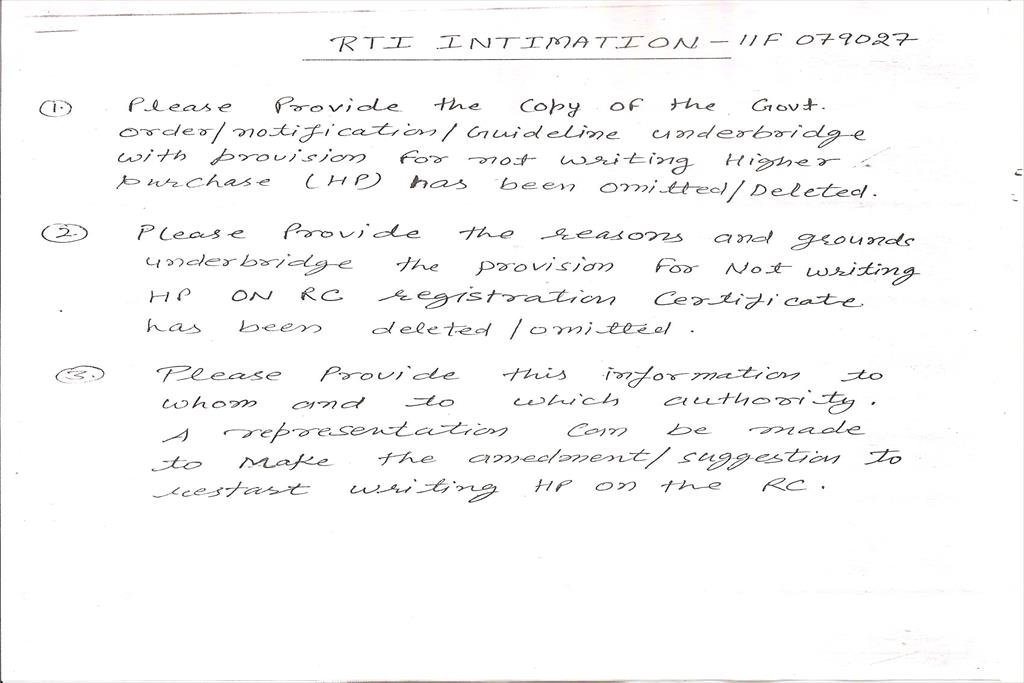 RTI INTIMATION - IIF 079027
1. Please Provide the Copy of the Govt.
order/notification/Guideline underbridge
with provision for not writing Higher
purchase (HP) has been omitted/Deleted.
2. Please Provide the reasons and grounds
underbridge the provision for Not writing
HP ON RC registration Certificate
has been deleted/omitted.
3. Please Provide this information to
whom and to which authority.
A representation Can be made
to Make the amedment/suggestion To
restart writing HP on the RC.